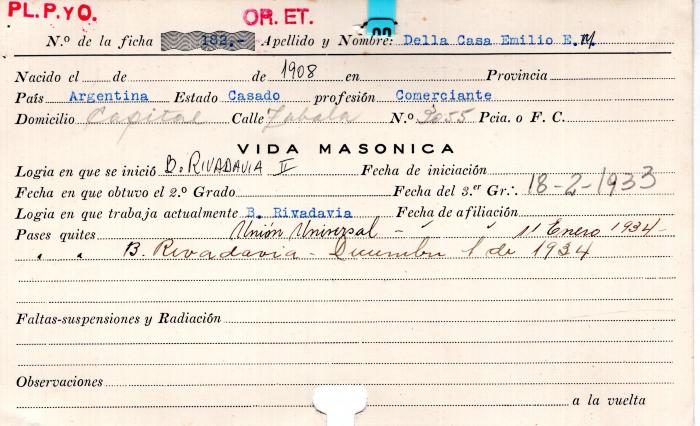 PL.P.yO.
OR.ET.
N.º de la ficha 182.- Apellido y Nombre: Della Casa Emilio E.M.
Nacido el de de 1908 en Provincia
País Argentina Estado Casado profesión Comerciante
Domicilio Capital Calle Zabala N.º 2055 Pcia. o F. C.
VIDA MASONICA
Logia en que se inició B. RIVADAVIA II Fecha de iniciación
Fecha en que obtuvo el 2.º Grado Fecha del 3.er Gr∴ 18-2-1933
Logia en que trabaja actualmente B. Rivadavia Fecha de afiliación
Pases quites Unión Universal - " " 11 Enero 1934-
" " B. Rivadavia - Diciembre 1 de 1934
Faltas-suspensiones y Radiación
Observaciones
a la vuelta